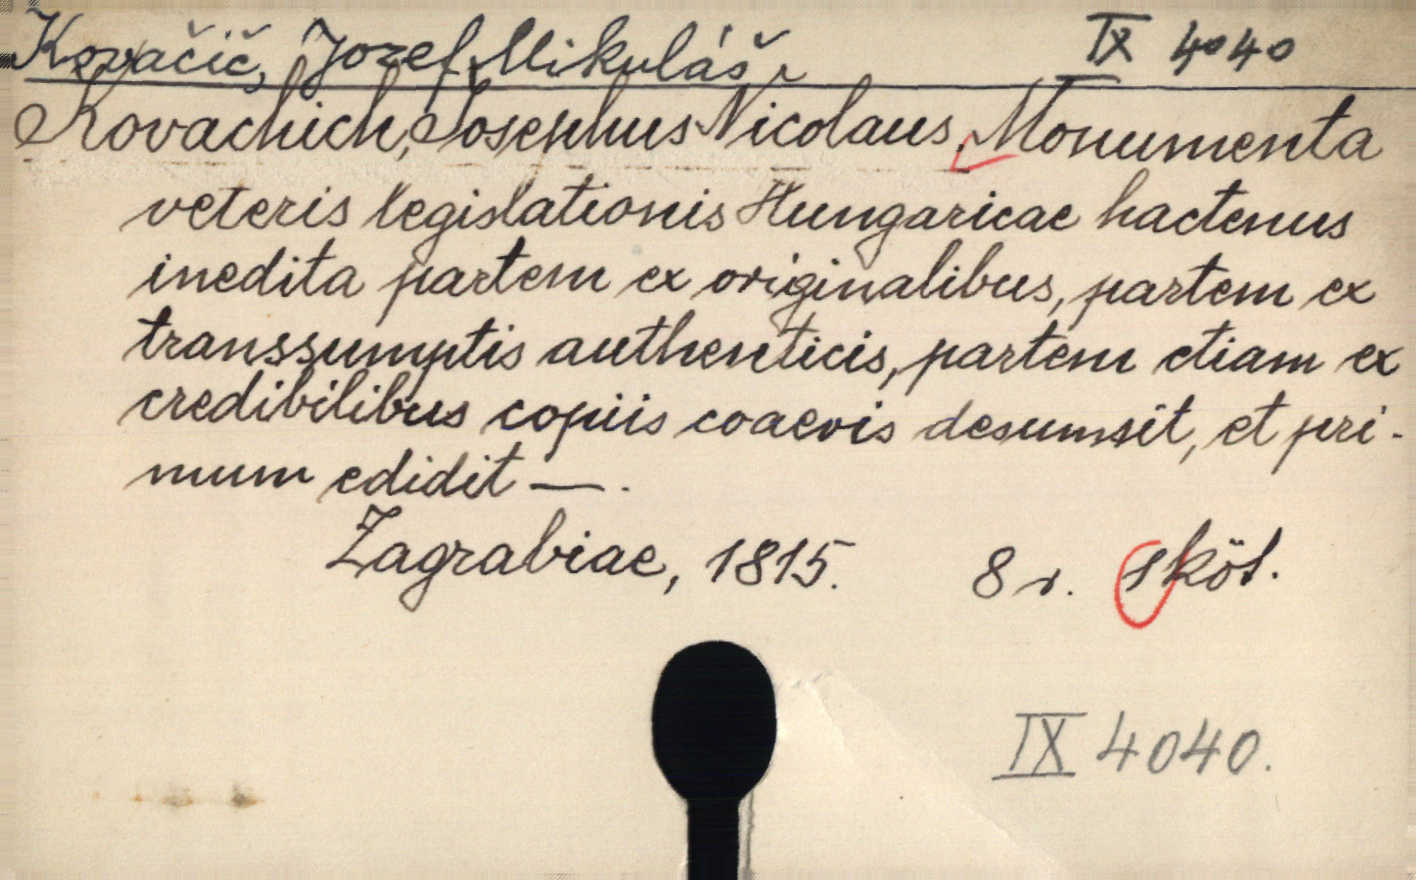 Kovačič, Jozef Mikuláš IX 4040
Kovachich, Josephus Nicolaus, Monumenta
veteris legislationis Hungaricae hactenus
inedita partem ex originalibus, partem ex
transsumptis authenticis, partem etiam ex
credibilibus copiis coaevis desumsit, et pri-
mum edidit —.
Zagrabiae, 1815. 8 r. sköt.
IX 4040.